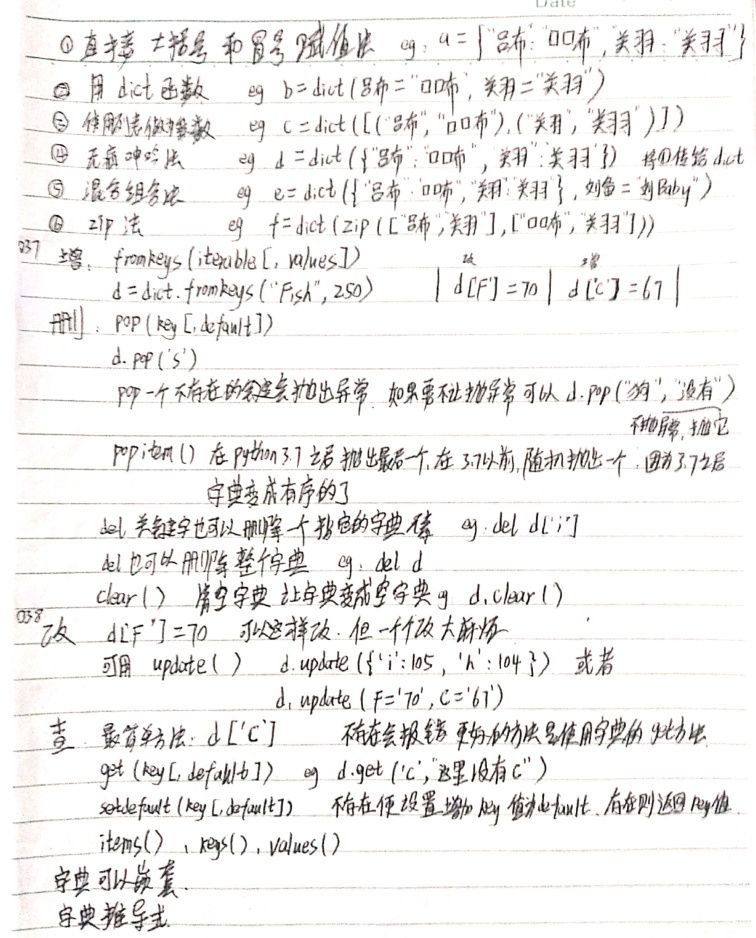 Date
① 直接大括号和冒号赋值法 eg: a = {"吕布":"口口布","关羽":"关习习"}
② 用 dict 函数 eg b = dict(吕布="口口布", 关羽="关习习")
③ 使用列表做参数 eg c = dict([("吕布","口口布"),("关羽","关习习")])
④ 无病呻吟法 eg d = dict({"吕布":"口口布","关羽":"关习习"}) 将①传给dict
⑤ 混合组合法 eg e = dict({"吕布":"口口布","关羽":"关习习"}, 刘备="刘Baby")
⑥ zip 法 eg f = dict(zip(["吕布","关羽"],["口口布","关习习"]))
037 增: fromkeys(iterable[, values])
d = dict.fromkeys("Fish", 250) | 改 d['F'] = 70 | 增 d['C'] = 67 |
删: pop(key[, default])
d.pop('s')
pop一个不存在的键会抛出异常. 如果要不让抛异常可以 d.pop("狗","没有")
不抛异常,抛它
popitem() 在 python3.7 之后抛出最后一个,在 3.7以前,随机抛出一个. 因为3.7之后
字典变成有序的了
del 关键字也可以删除一个指定的字典元素 eg: del d['i']
del 也可以删除整个字典 eg: del d
clear() 清空字典 让字典变成空字典 eg d.clear()
038 改 d['F'] = 70 可以这样改. 但一个个改太麻烦
可用 update() d.update({'i':105, 'h':104}) 或者
d.update(F='70', C='67')
查 最简单方法: d['C'] 不存在会报错 更好的方法是使用字典的 get方法
get(key[, default]) eg d.get('c',"这里没有C")
setdefault(key[, default]) 不存在便设置增加 key 值为default. 存在则返回 key值.
items(), keys(), values()
字典可以嵌套.
字典推导式.